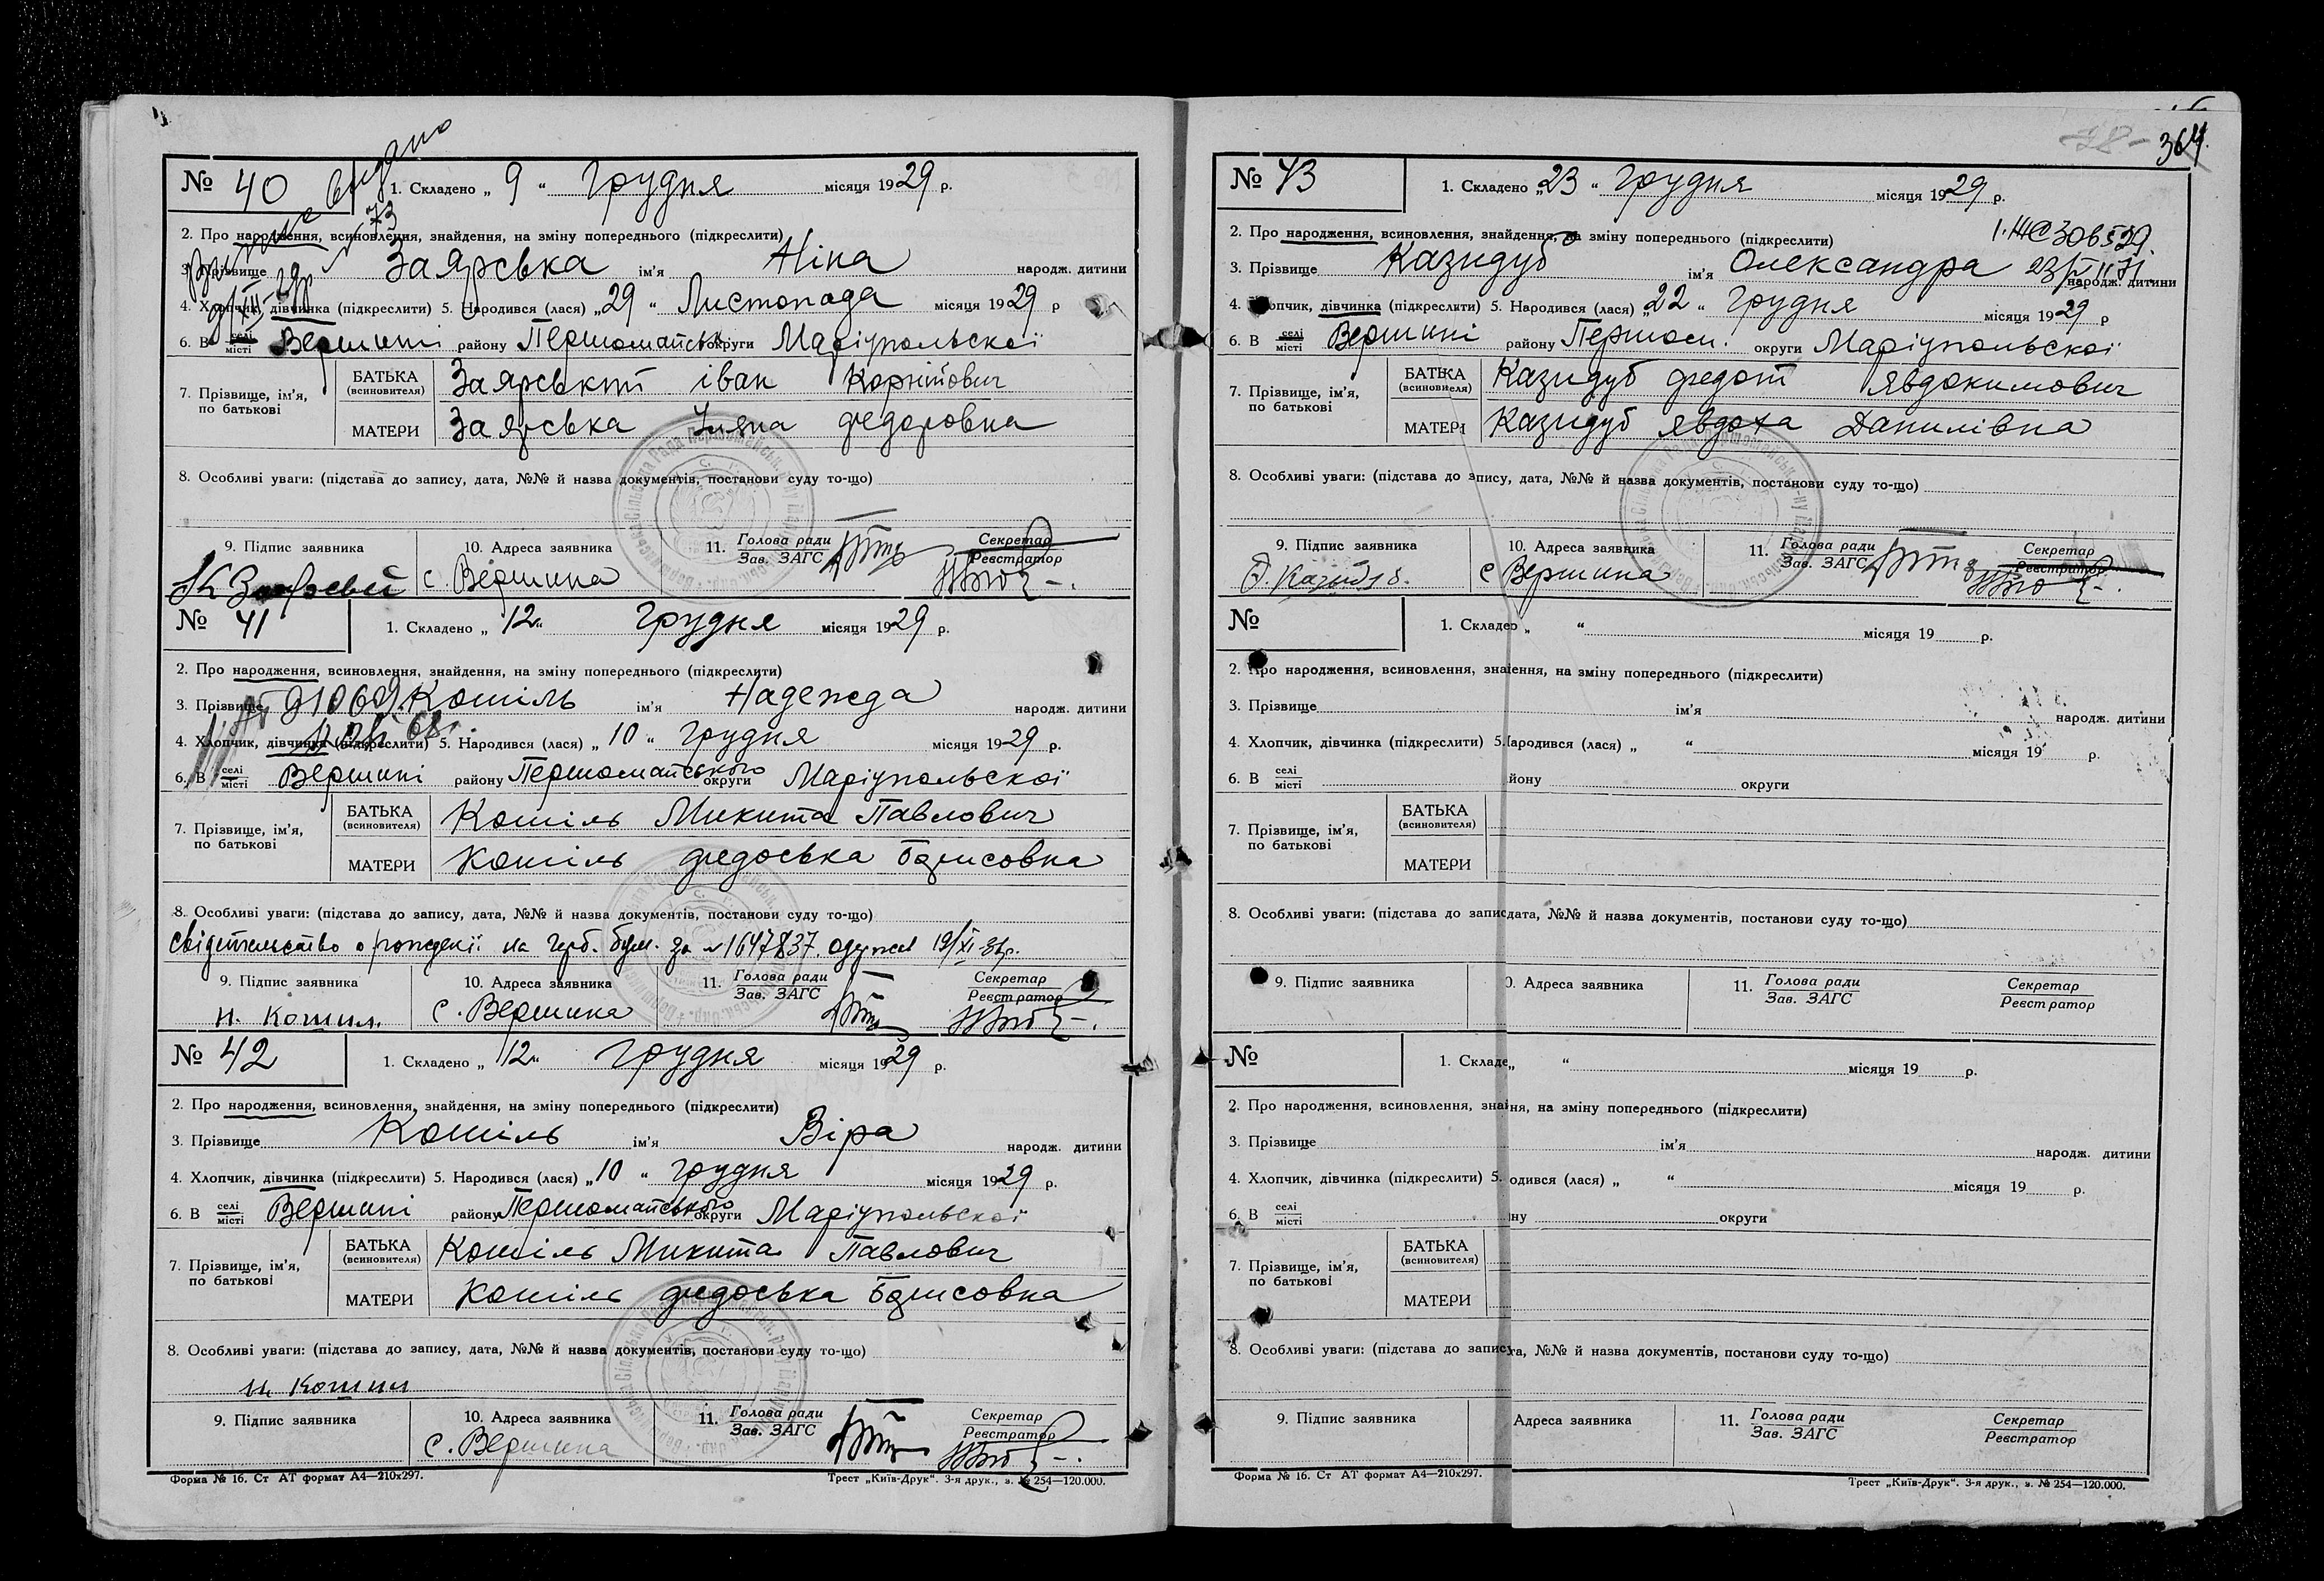 364
№ 40 1. Складено „ 9 “ Грудня місяця 1929 р.
видано
2. Про народження, всиновлення, знайдення, на зміну попереднього (підкреслити)
3. Прізвище Заярська ім'я Ніна народж. дитини
4. Хлопчик, дівчинка (підкреслити) 5. Народився (лася) „ 29 “ Листопада місяця 1929 р
6. В селі місті Вершині району Першомайськ округи Маріупольскої
7. Прізвище, ім'я, по батькові
БАТЬКА (всиновителя) Заярський іван Корнійович
МАТЕРИ Заярська Уляна Федоровна
8. Особливі уваги: (підстава до запису, дата, №№ й назва документів, постанови суду то-що)
9. Підпис заявника 10. Адреса заявника 11. Голова ради Зав. ЗАГС Секретар Реєстратор
с. Вершина
№ 41 1. Складено „ 12 “ Грудня місяця 1929 р.
2. Про народження, всиновлення, знайдення, на зміну попереднього (підкреслити)
3. Прізвище Кошіль ім'я Надежда народж. дитини
4. Хлопчик, дівчинка (підкреслити) 5. Народився (лася) „ 10 “ Грудня місяця 1929 р.
6. В селі місті Вершині району Першомайського округи Маріупольскої
7. Прізвище, ім'я, по батькові
БАТЬКА (всиновителя) Кошіль Микита Павлович
МАТЕРИ Кошіль Федоська Борисовна
8. Особливі уваги: (підстава до запису, дата, №№ й назва документів, постанови суду то-що)
свідетельство о рождені на герб. бум. за № 1647837
9. Підпис заявника 10. Адреса заявника 11. Голова ради Зав. ЗАГС Секретар Реєстратор
Н. Кошил. с. Вершина
№ 42 1. Складено „ 12 “ Грудня місяця 1929 р.
2. Про народження, всиновлення, знайдення, на зміну попереднього (підкреслити)
3. Прізвище Кошіль ім'я Віра народж. дитини
4. Хлопчик, дівчинка (підкреслити) 5. Народився (лася) „ 10 “ Грудня місяця 1929 р.
6. В селі місті Вершині району Першомайського округи Маріупольскої
7. Прізвище, ім'я, по батькові
БАТЬКА (всиновителя) Кошіль Микита Павлович
МАТЕРИ Кошіль Федоська Борисовна
8. Особливі уваги: (підстава до запису, дата, №№ й назва документів, постанови суду то-що)
н. Кошил
9. Підпис заявника 10. Адреса заявника 11. Голова ради Зав. ЗАГС Секретар Реєстратор
с. Вершина
Форма № 16. Ст АТ формат А4—210х297. Трест „Київ-Друк“. 3-я друк., з. № 254—120.000.
№ 43 1. Складено „ 23 “ Грудня місяця 1929 р.
2. Про народження, всиновлення, знайдення, на зміну попереднього (підкреслити)
3. Прізвище Казидуб ім'я Олександра народж. дитини
4. Хлопчик, дівчинка (підкреслити) 5. Народився (лася) „ 22 “ Грудня місяця 1929 р
6. В селі місті Вершині району Першом. округи Маріупольскої
7. Прізвище, ім'я, по батькові
БАТЬКА (всиновителя) Казидуб Федот Явдокимович
МАТЕРИ Казидуб Явдоха Данилівна
8. Особливі уваги: (підстава до запису, дата, №№ й назва документів, постанови суду то-що)
9. Підпис заявника 10. Адреса заявника 11. Голова ради Зав. ЗАГС Секретар Реєстратор
Ф. Казидуб. с Вершина
№ 1. Складено „ “ місяця 19 р.
2. Про народження, всиновлення, знайдення, на зміну попереднього (підкреслити)
3. Прізвище ім'я народж. дитини
4. Хлопчик, дівчинка (підкреслити) 5. Народився (лася) „ “ місяця 19 р.
6. В селі місті йону округи
7. Прізвище, ім'я, по батькові
БАТЬКА (всиновителя)
МАТЕРИ
8. Особливі уваги: (підстава до запис дата, №№ й назва документів, постанови суду то-що)
9. Підпис заявника Адреса заявника 11. Голова ради Зав. ЗАГС Секретар Реєстратор
№ 1. Складе „ “ місяця 19 р.
2. Про народження, всиновлення, зна ня, на зміну попереднього (підкреслити)
3. Прізвище ім'я народж. дитини
4. Хлопчик, дівчинка (підкреслити) 5. одився (лася) „ “ місяця 19 р.
6. В селі місті ну округи
7. Прізвище, ім'я, по батькові
БАТЬКА (всиновителя)
МАТЕРИ
8. Особливі уваги: (підстава до запису та, №№ й назва документів, постанови суду то-що)
9. Підпис заявника Адреса заявника 11. Голова ради Зав. ЗАГС Секретар Реєстратор
Форма № 16. Ст АТ формат А4—210х297. Трест „Київ-Друк“. 3-я друк., з. № 254—120.000.